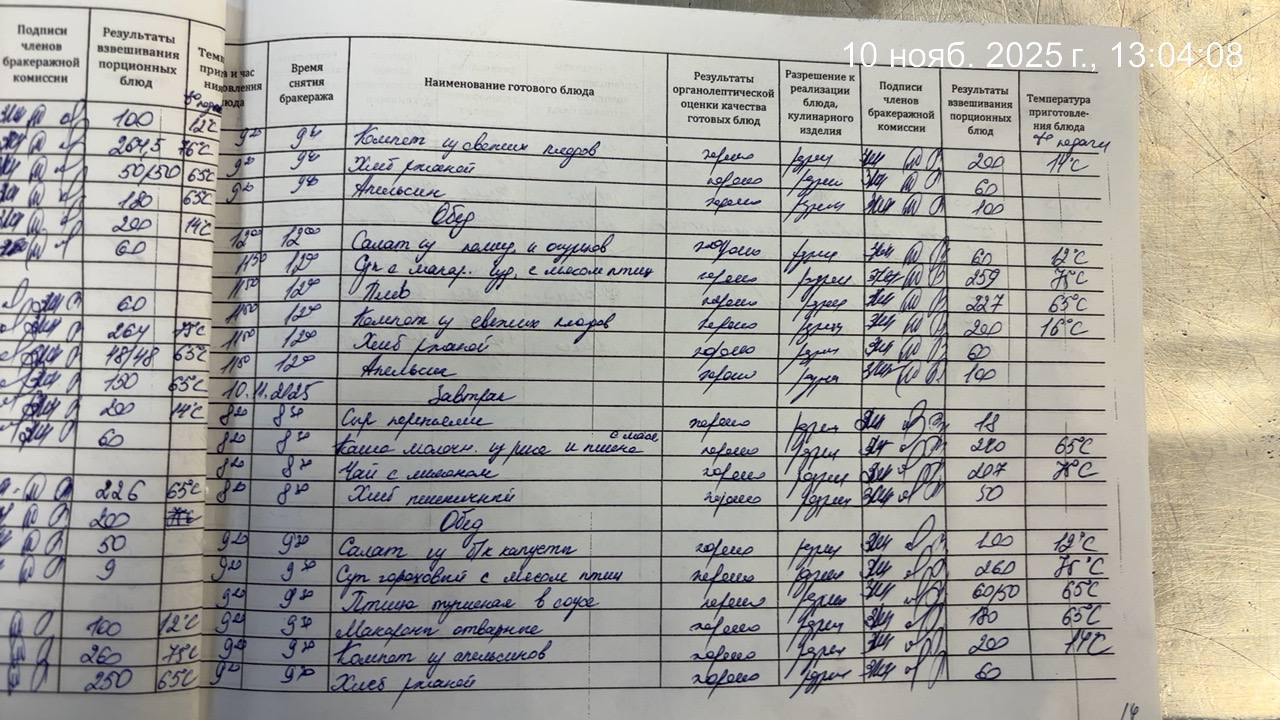 10 нояб. 2025 г., 13:04:08
Подписи членов бракеражной комиссии
Результаты взвешивания порционных блюд
100 12°C
264,5 75°C
50/50 65°C
180 65°C
200 14°C
60
60
264 75°C
48/48 65°C
150 65°C
200 14°C
60
226 65°C
200
50
9
100 12°C
260 75°C
250 65°C
Время снятия бракеража
Наименование готового блюда
Результаты органолептической оценки качества готовых блюд
Разрешение к реализации блюда, кулинарного изделия
Подписи членов бракеражной комиссии
Результаты взвешивания порционных блюд
Температура приготовления блюда
t° подачи
9²⁰ 9³⁰ Компот из свежих плодов хорошо разреш 200 14°C
9²⁰ 9³⁰ Хлеб ржаной хорошо разреш 60
9²⁰ 9³⁰ Апельсин хорошо разреш 100
Обед
12⁰⁰ 12⁰⁰ Салат из помид. и огурцов хорошо разреш 60 12°C
11⁵⁰ 12⁰⁰ Суп с макар. изд. с мясом птиц хорошо разреш 259 75°C
11⁵⁰ 12⁰⁰ Плов хорошо разреш 227 65°C
11⁵⁰ 12⁰⁰ Компот из свежих плодов хорошо разреш 200 16°C
11⁵⁰ 12⁰⁰ Хлеб ржаной хорошо разреш 60
11⁵⁰ 12⁰⁰ Апельсин хорошо разреш 100
10.11.2025 Завтрак
8²⁰ 8³⁰ Сыр порциями хорошо разреш 18
8²⁰ 8³⁰ Каша молочн. из риса и пшена с масл хорошо разреш 240 65°C
8²⁰ 8³⁰ Чай с лимоном хорошо разреш 207 75°C
8²⁰ 8³⁰ Хлеб пшеничный хорошо разреш 50
Обед
9²⁰ 9³⁰ Салат из б/к капусты хорошо разреш 100 12°C
9²⁰ 9³⁰ Суп гороховый с мясом птиц хорошо разреш 260 75°C
9²⁰ 9³⁰ Птица тушеная в соусе хорошо разреш 60/50 65°C
9²⁰ 9³⁰ Макароны отварные хорошо разреш 180 65°C
9²⁰ 9³⁰ Компот из апельсинов хорошо разреш 200 14°C
9²⁰ 9³⁰ Хлеб ржаной хорошо разреш 60